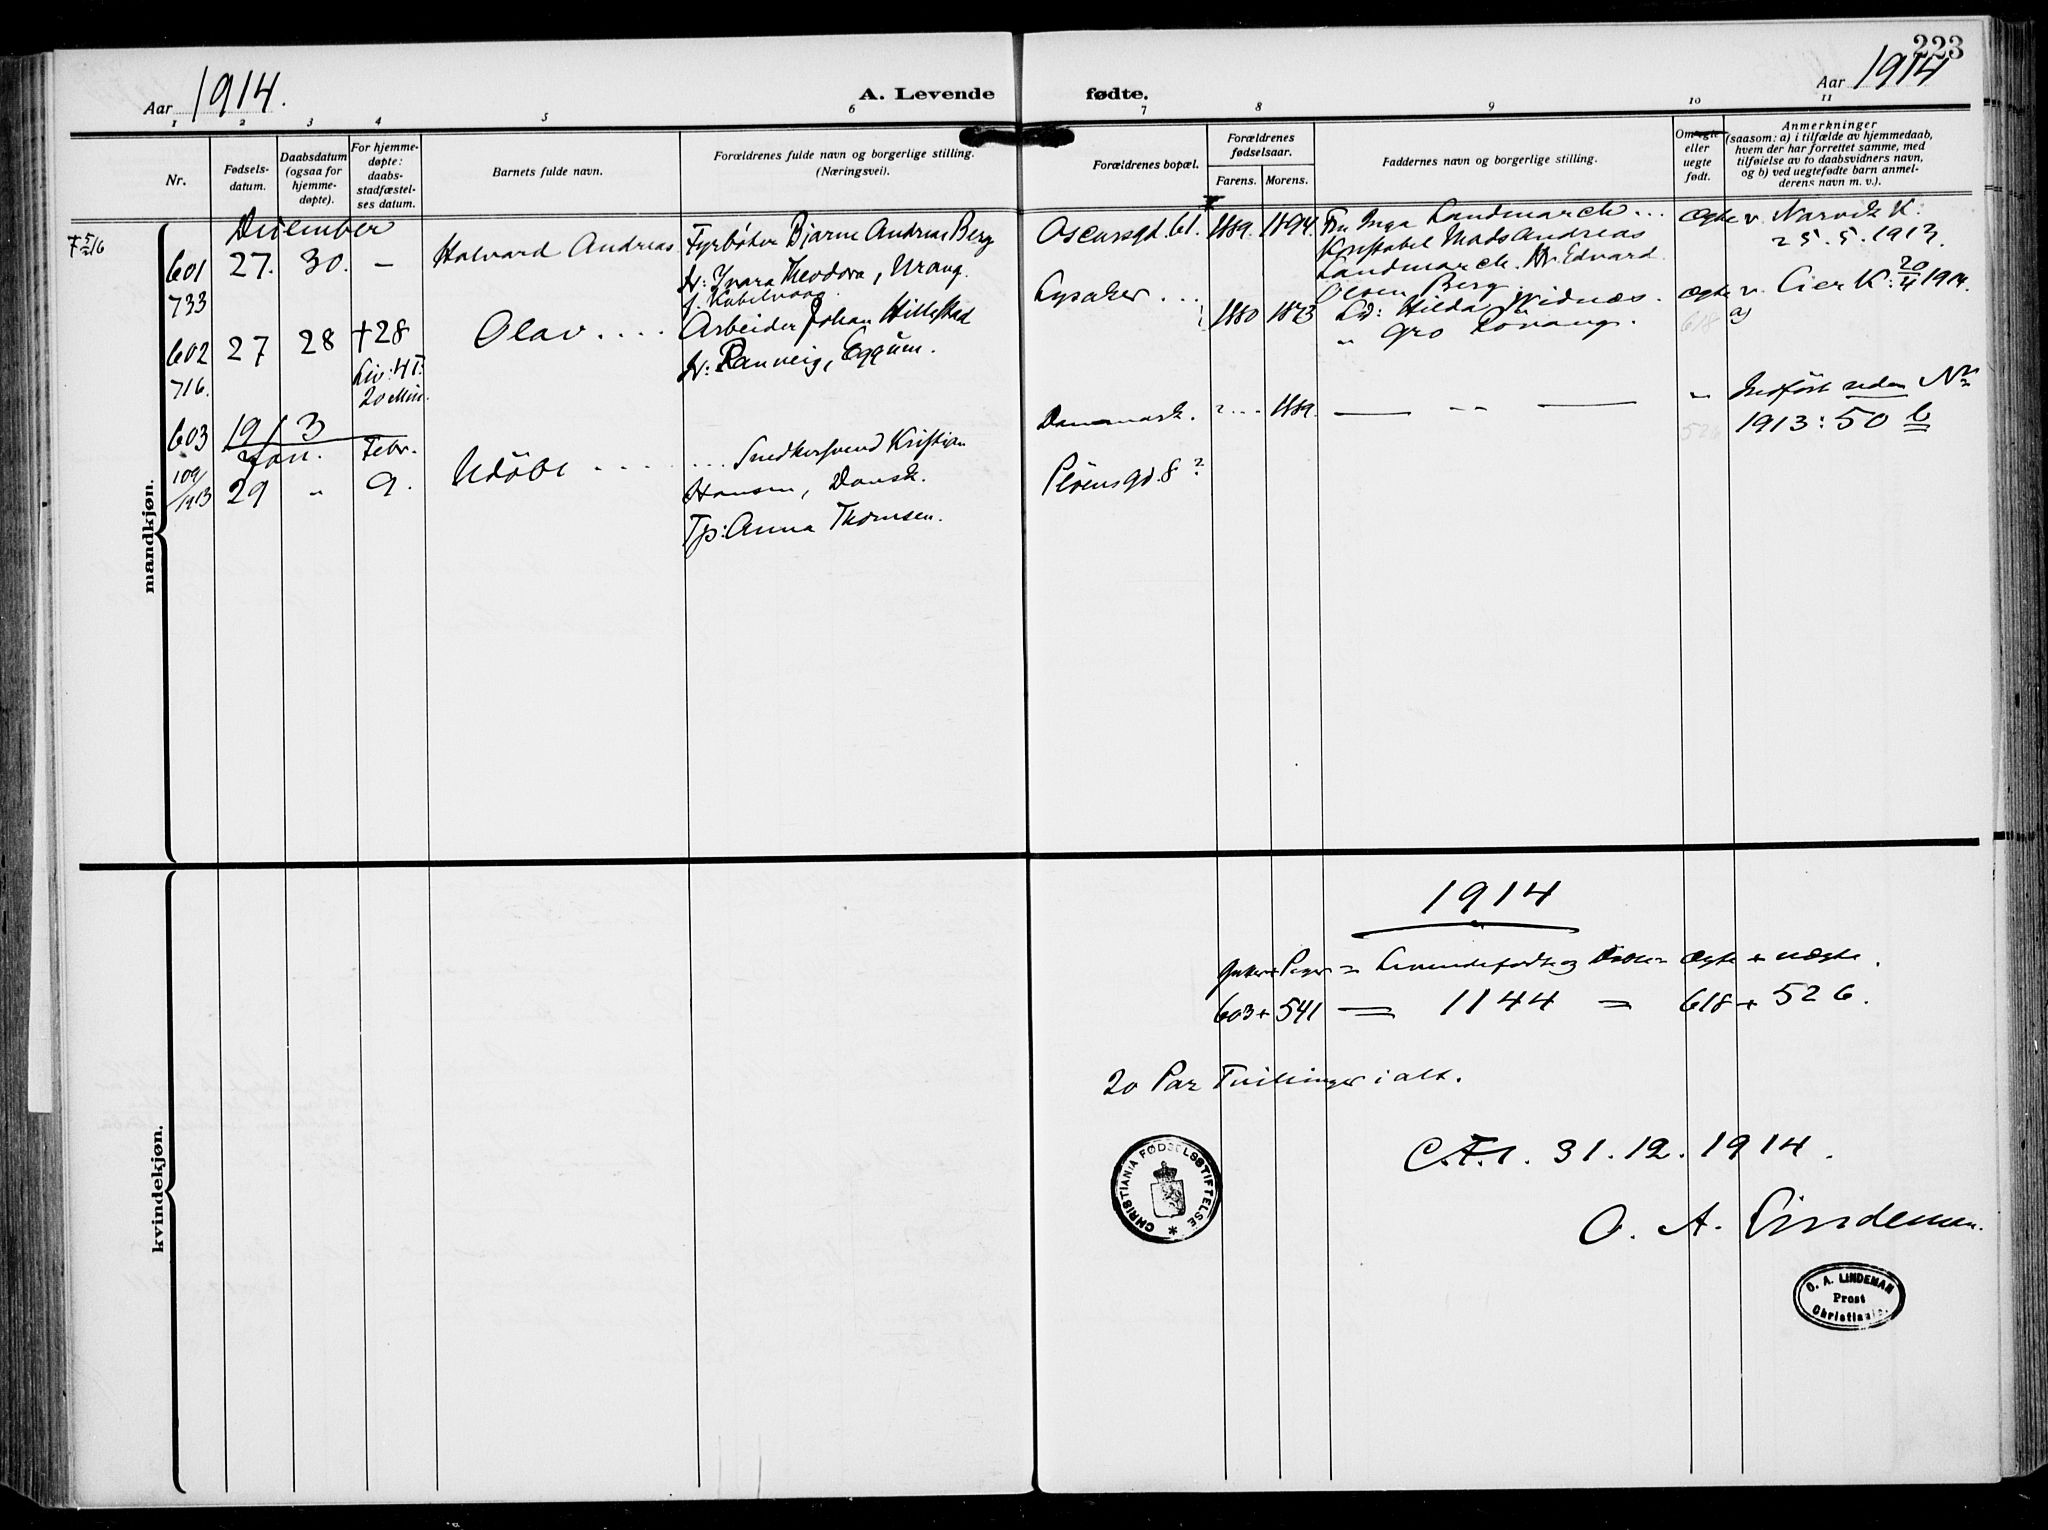 223
Aar 1914.
A. Levende fødte.
Aar 1914
1 2 3 4 5 6 7 8 9 10 11
Nr.
Fødsels-
datum.
Daabsdatum
(ogsaa for
hjemme-
døpte).
For hjemme-
døpte:
daabs-
stadfæstel-
ses datum.
Barnets fulde navn.
Forældrenes fulde navn og borgerlige stilling.
(Næringsvei).
Forældrenes bopæl.
Forældrenes
fødselsaar.
Farens. Morens.
Faddernes navn og borgerlige stilling.
Om ægte
eller
uegte
født.
Anmerkninger
(saasom: a) i tilfælde av hjemmedaab,
hvem der har forrettet samme, med
tilføielse av to daabsvidners navn,
og b) ved uegtefødte barn anmel-
derens navn m. v.).
mandkjøn.
December
601
733
27. 30. –
Halvard Andreas
Fyrbøter Bjarne Andreas Berg
H: Ivara Theodora, Wrang.
f. Kabelvaag.
Oscarsgd. 61.
1889. 1894.
Fru Inga Landmarck...
Konstabel Mads Andreas
Landmarck. Hr. Edvard
Olsen Berg.
Ægte v. Narvik K.
25.5.1913.
602
716.
27 28 †28
Liv: 4 T:
20 Min.
Olav ....
Arbeider Johan Hillestad
H: Ranveig, Eggum.
Lysaker ...
1880 1873
Ld: Hilda Widnæs.
" Gro Rovang.
Ægte v. Lier K: 20/4 1914.
618
a)
603
109/1913
1913
Jan. Febr.
29 " 9.
Udøbt ....
... Snedkersvend Kristian
Hansen, Dansk.
Tp: Anna Thomsen.
Danmark.
Pløensgd. 8 ?
? ... 1889.
— -- —
"
526
Indført uden No
1913: 50 b
kvindekjøn.
1914
Gutter + Piger = Levendefødte og Døbte = Ægte + uægte.
603 + 541 = 1144 = 618 + 526.
20 Par Tvillinger i alt.
C.F.l. 31.12.1914.
O. A. Lindeman.
CHRISTIANIA FØDSELSSTIFTELSE *
O. A. LINDEMAN
Prost
Christiania.